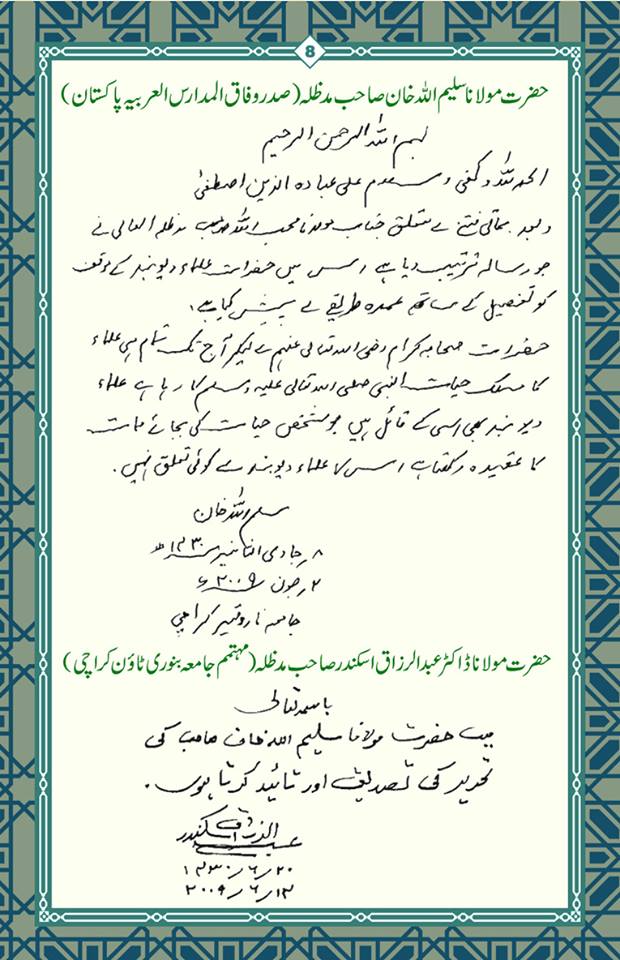 8
حضرت مولانا سلیم اللہ خان صاحب مدظلہ (صدر وفاق المدارس العربیہ پاکستان)
بسم اللہ الرحمن الرحیم
الحمد للہ وکفی وسلام علی عبادہ الذین اصطفیٰ
وبعد مماتی فتنے سے متعلق جناب مولانا محب اللہ صاحب مدظلہ العالی نے
جو رسالہ ترتیب دیا ہے اس میں حضرات علماء دیوبند کے موقف
کو تفصیل کے ساتھ عمدہ طریقے سے پیش کیا ہے۔
حضرات صحابہ کرام رضی اللہ تعالیٰ عنہم سے لیکر آج تک تمام ہی علماء
کا مسلک حیات النبی صلی اللہ تعالیٰ علیہ وسلم کا رہا ہے علماء
دیوبند بھی اسی کے قائل ہیں جو شخص حیات کی بجائے ممات
کا عقیدہ رکھتا ہے اس کا علماء دیوبند سے کوئی تعلق نہیں۔
سلیم اللہ خان
۸ جمادی الثانیہ ۱۴۳۰ھ
۲ جون ۲۰۰۹ء
جامعہ فاروقیہ کراچی
حضرت مولانا ڈاکٹر عبد الرزاق اسکندر صاحب مدظلہ (مہتمم جامعہ بنوری ٹاؤن کراچی)
باسمہ تعالیٰ
میں حضرت مولانا سلیم اللہ خان صاحب کی
تحریر کی تصدیق اور تائید کرتا ہوں۔
عبد الرزاق اسکندر
۲۰/۶/۱۴۳۰
۱۴/۶/۲۰۰۹